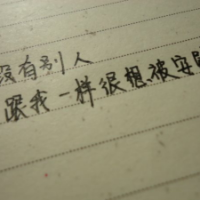 没有别人
跟我一样很想被安